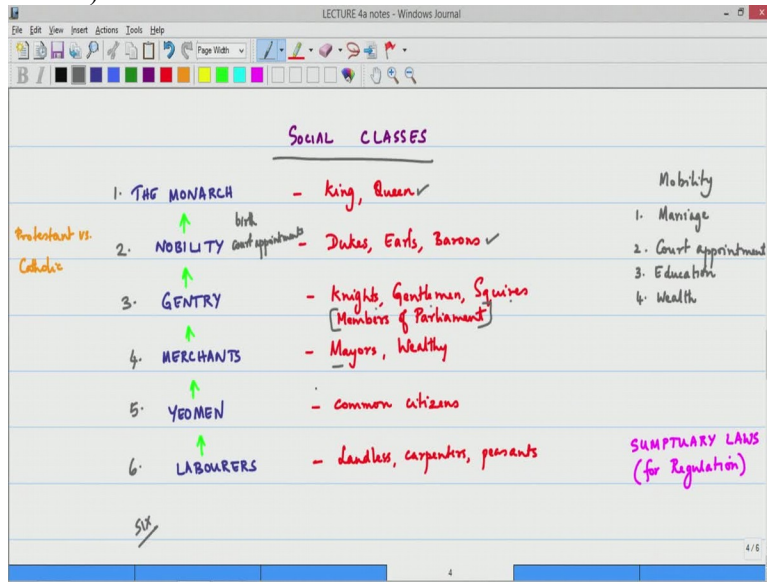 LECTURE 4a notes - Windows Journal
File Edit View Insert Actions Tools Help
Page Width
B I
SOCIAL CLASSES
1. THE MONARCH - King, Queen ✓
2. NOBILITY birth Court appointments - Dukes, Earls, Barons ✓
Protestant vs. Catholic
3. GENTRY - Knights, Gentlemen, Squires
[Members of Parliament]
4. MERCHANTS - Mayors, Wealthy
5. YEOMEN - Common citizens
6. LABOURERS - Landless, carpenters, peasants
SIX
Mobility
1. Marriage
2. Court appointment
3. Education
4. Wealth
SUMPTUARY LAWS
(for Regulation)
4/6
4